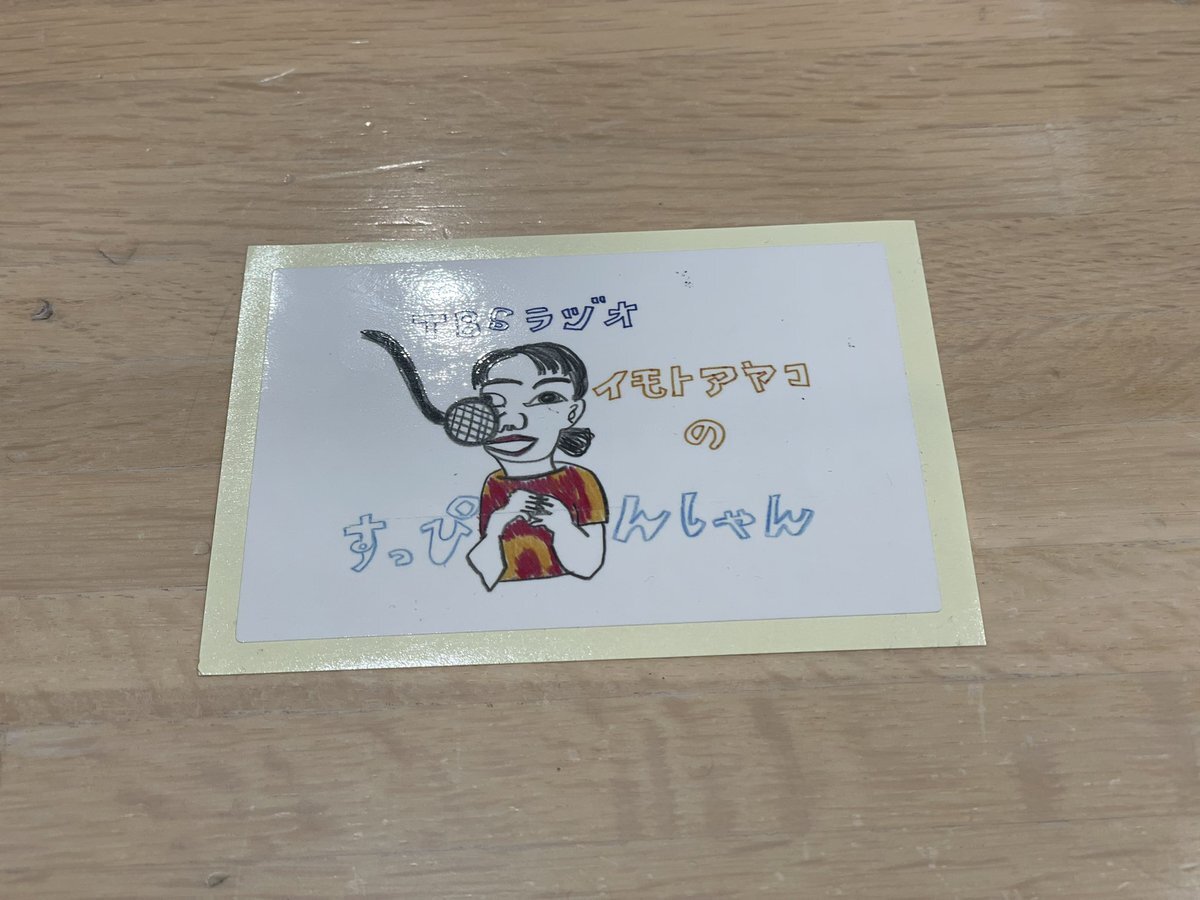 TBSラジオ
イモトアヤコ
の
すっぴんしゃん